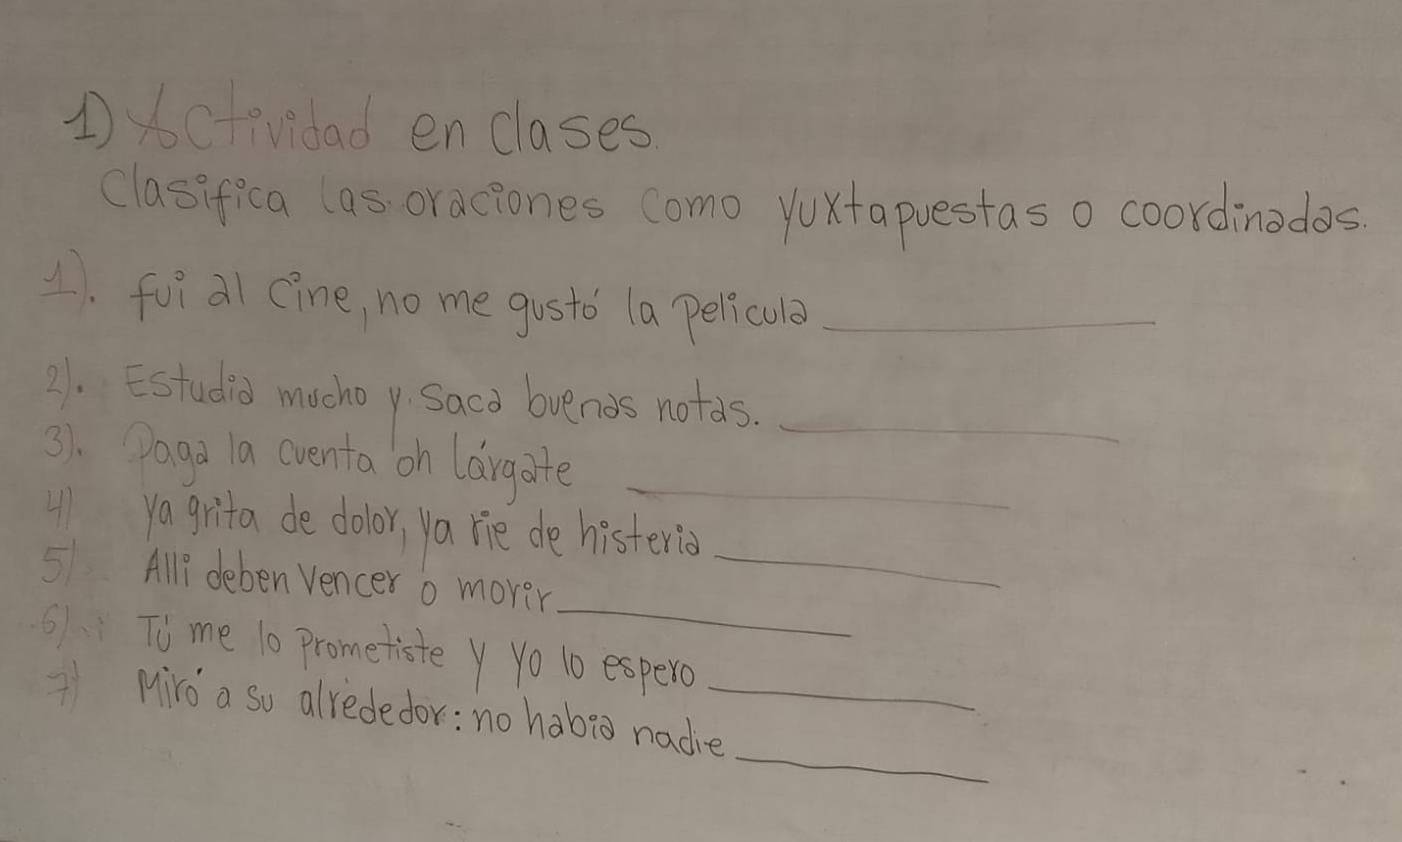 1) Actividad en clases.
Clasifica las oraciones como yuxtapuestas o coordinadas.
1). fui al cine, no me gustó la pelicula
2). Estudia mucho y saca buenas notas.
3). Paga la cuenta oh lárgate
4) ya grita de dolor, ya rie de histeria
5) Alli deben vencer o morir
6) Tú me lo prometiste y yo lo espero
7) Miró a su alrededor: no habia nadie